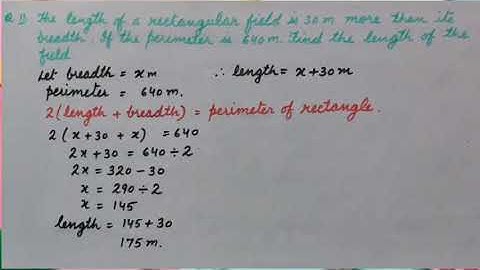 Q 1). The length of a rectangular field is 30 m more than its
breadth. If the perimeter is 640 m. Find the length of the
field
Let breadth = x m ∴ length = x + 30 m
perimeter = 640 m.
2 (length + breadth) = perimeter of rectangle.
2 (x + 30 + x) = 640
2x + 30 = 640 ÷ 2
2x = 320 - 30
x = 290 ÷ 2
x = 145
length = 145 + 30
175 m.